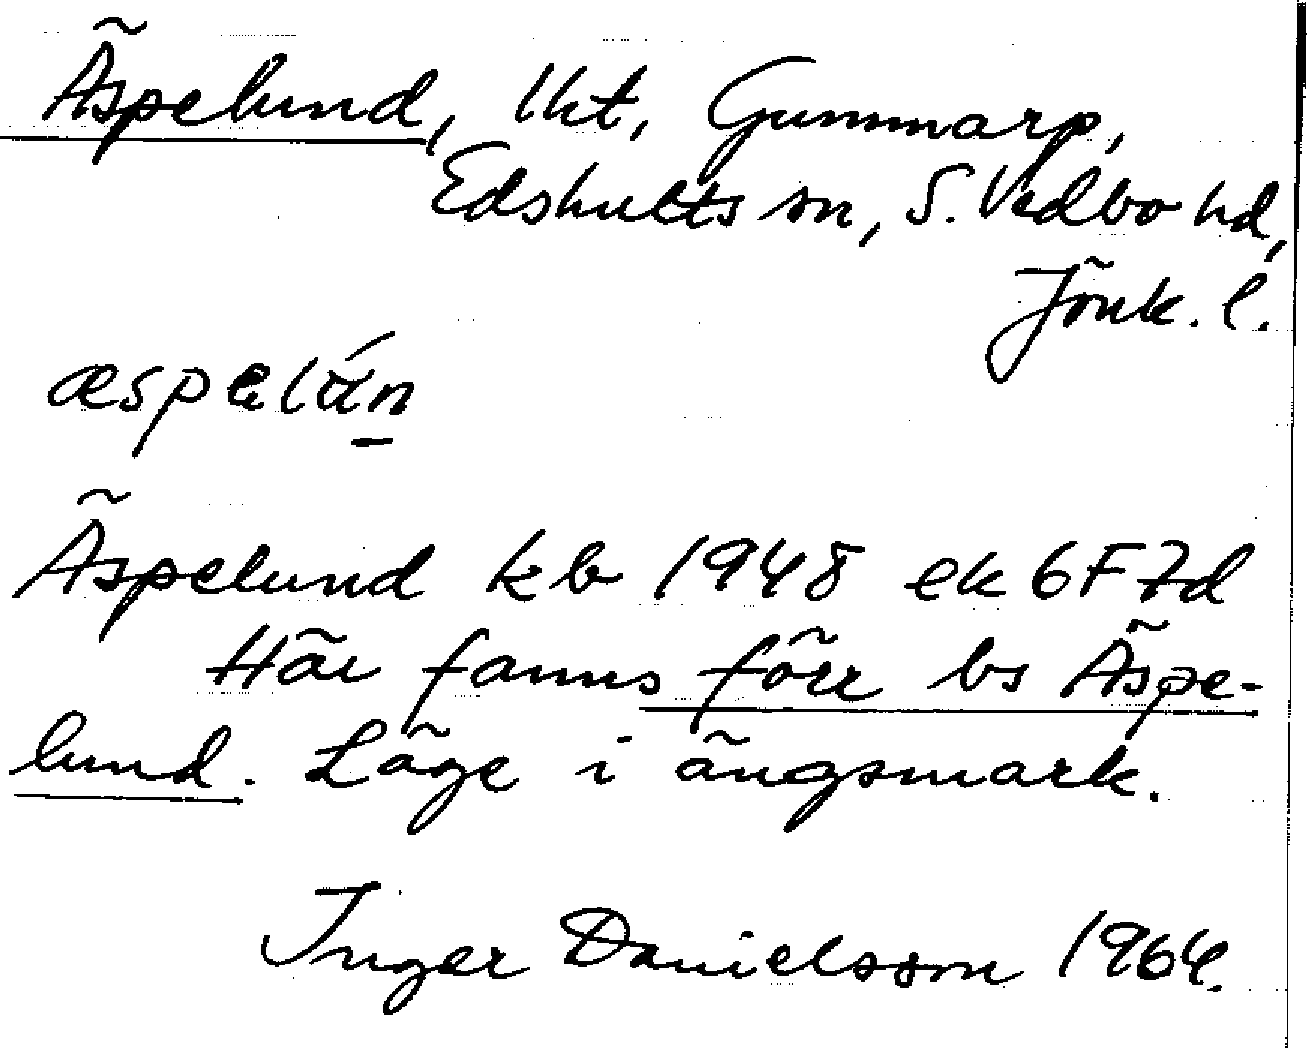 Äspelund, lht, Gummarp,
Edshults sn, S. Vedbo hd,
Jönk. l.
æspelún
Äspelund kb 1948 ek 6F7d
Här fanns förr bs Äspe-
lund. Läge i ängsmark.
Inger Danielsson 1964.